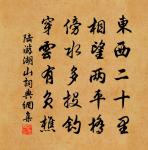 東西二十里
相望兩平橋
傍水多投釣
穿雲有負樵
陸游湖山詞典網集